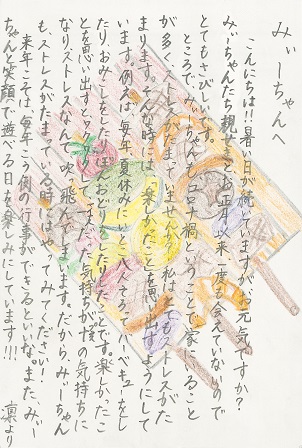 みぃーちゃんへ
こんにちは!!暑い日が続いてますがお元気ですか？
みぃーちゃんたち親せきとお正月以来一度も会えていないので
とてもさびしいです。
ところで、みぃーちゃんはコロナ禍ということで家にいること
が多く、ストレスがたまっていませんか？私はとてもストレスがた
まります。そんな時には、楽しかったことを思い出すようにして
います。例えば、毎年、夏休みにいとこみんなでバーベキューをし
たり、おみこしをしたり、ぼんおどりをしたりしたことです。楽しかったこ
とを思い出すとスッキリして、まだ、気持ちが
なりストレスなんて、吹っ飛んでしまいます。だからみぃーちゃん
も、ストレスがたまっている時にはやってみてください！
来年こそは毎年ごう例の行事ができるといいな。また、みぃー
ちゃんと笑顔で遊べる日を楽しみにしています!!!
凛より